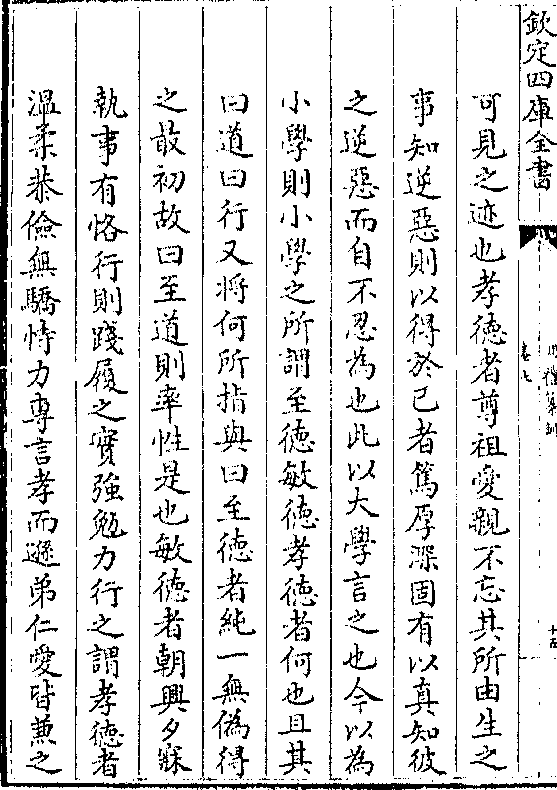 欽定四庫全書
周禮集說
卷七
十五
可見之迹也孝德者尊祖愛親不忘其所由生之
事知逆惡則以得於己者篤厚深固有以真知彼
之逆惡而自不忍為也此以大學言之也今以為
小學則小學之所謂至德敏德孝德者何也且其
曰道曰行又將何所指與曰至德者純一無偽得
之最初故曰至道則率性是也敏德者朝興夕寐
執事有恪行則踐履之實強勉力行之謂孝德者
溫柔恭儉無驕恃力專言孝而遜弟仁愛皆兼之